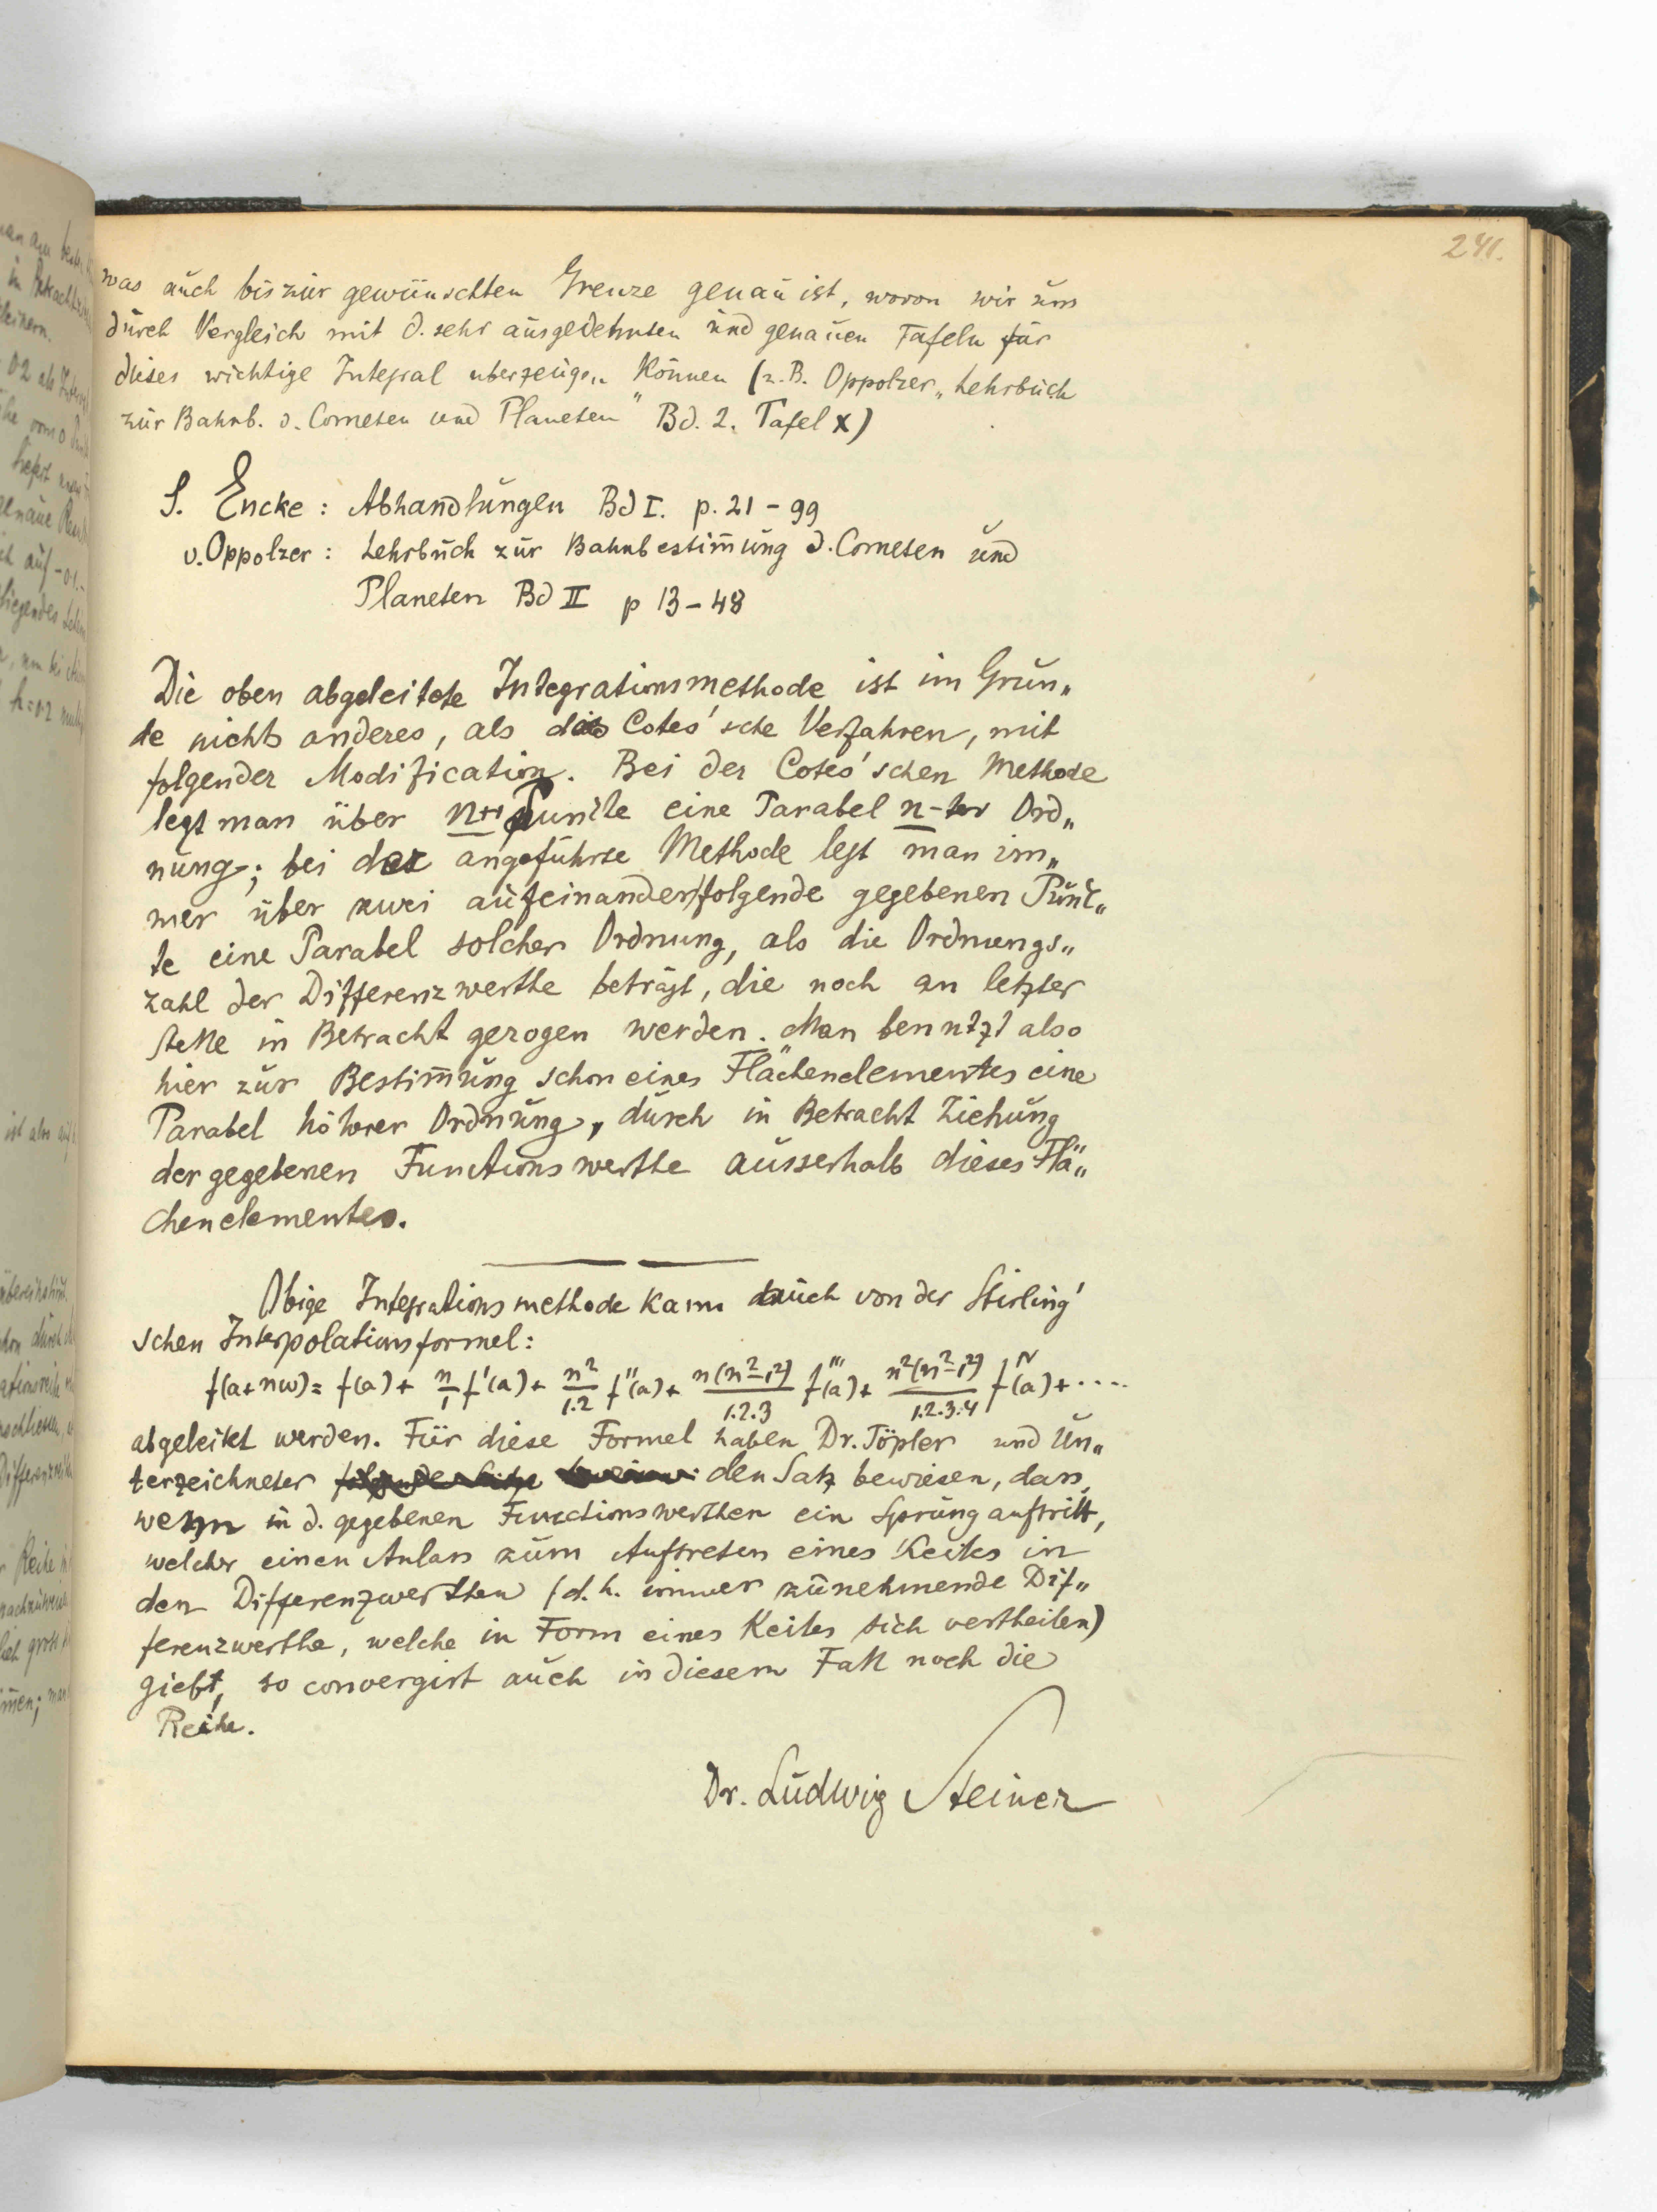 241.
was auch bis zur gewünschten Grenze genau ist, wovon wir uns
durch Vergleich mit d. sehr ausgedehnten und genauen Tafeln für
dieses wichtige Integral uberzeugen Können (z.B. Oppolzer „Lehrbuch
zur Bahnb. d. Cometen und Planeten" Bd. 2. Tafel X)
S. Encke: Abhandlungen Bd I. p. 21 - 99
v. Oppolzer: Lehrbuch zur Bahnbestim̄ung d. Cometen und
Planeten Bd II p 13 - 48
Die oben abgeleitete Integrationsmethode ist im Grun„
de nichts anderes, als das Cotes'sche Verfahren, mit
folgender Modification. Bei der Cotes'schen Methode
legt man über n+1 Puncte eine Parabel n-ter Ord„
nung; bei der angeführte Methode legt man im„
mer über zwei aufeinanderfolgende gegebenen Punc„
te eine Parabel solcher Ordnung, als die Ordnungs„
zahl der Differenzwerthe beträgt, die noch an letzter
stelle in Betracht gezogen werden. Man bennutzt also
hier zur Bestim̄ung schon eines Flächenelementes eine
Parabel höhrer Ordnung, durch in Betracht Ziehung
der gegebenen Functionswerthe ausserhalb dieses Flä„
chenelementes.
Obige Integrationsmethode kann auch von der Stirling'
schen Interpolationsformel:
f(a+nω) = f(a) + n/1 f'(a) + n²/1.2 f''(a) + n(n²-1²)/1.2.3 f'''(a) + n²(n²-1²)/1.2.3.4 f^IV(a) + ....
abgeleitet werden. Für diese Formel haben Dr. Töpler und Un„
terzeichneter den Satz bewiesen, dass,
wenn in d. gegebenen Functionswerthen ein Sprung auftritt,
welcher einen Anlass zum Auftreten eines Keiles in
den Differenzwerthen (d.h. immer zunehmende Dif„
ferenzwerthe, welche in Form eines Keiles sich vertheilen)
giebt, so convergirt auch in diesem Fall noch die
Reihe.
Dr. Ludwig Steiner